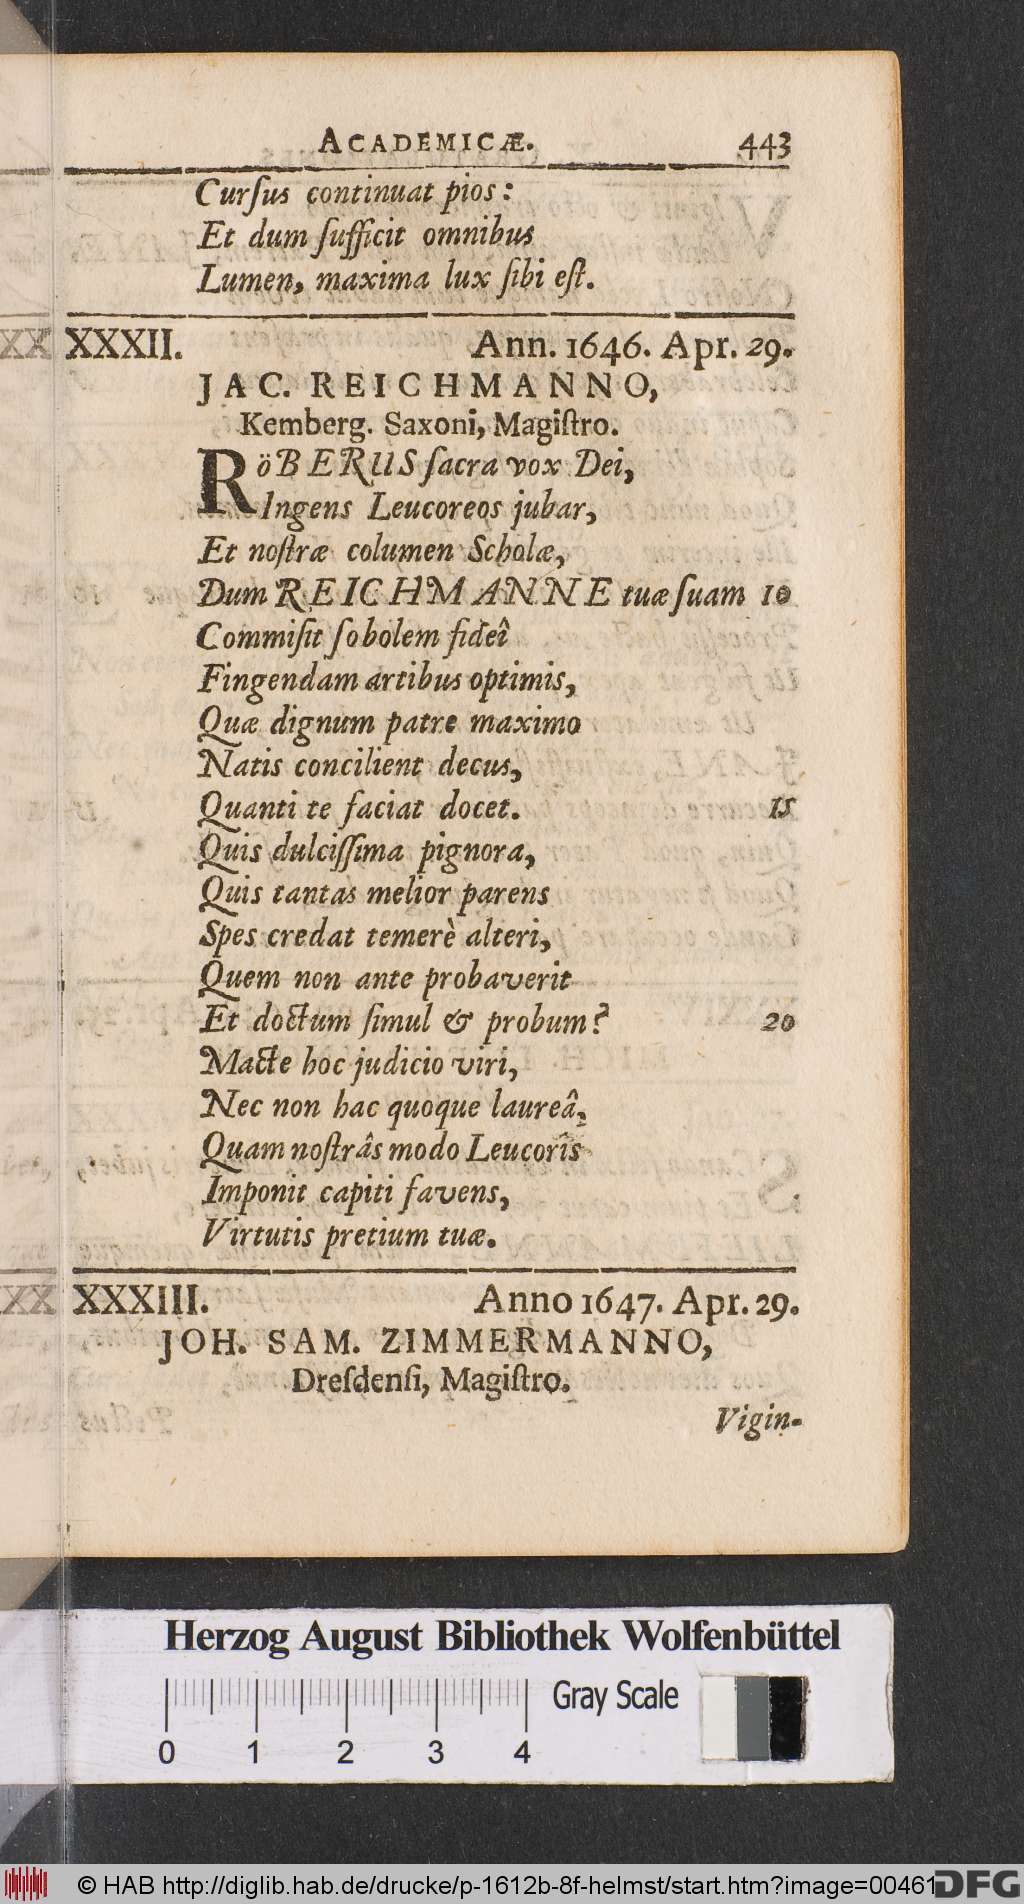 ACADEMICÆ. 443
Curſus continuat pios:
Et dum ſufficit omnibus
Lumen, maxima lux ſibi eſt.
XX XXXII. Ann. 1646. Apr. 29.
JAC. REICHMANNO,
Kemberg. Saxoni, Magiſtro.
RöBERUS ſacra vox Dei,
Ingens Leucoreos jubar,
Et noſtræ columen Scholæ,
Dum REICHMANNE tuæ ſuam 10
Commiſit ſobolem fideî
Fingendam artibus optimis,
Quæ dignum patre maximo
Natis concilient decus,
Quanti te faciat docet. 15
Quis dulciſſima pignora,
Quis tantas melior parens
Spes credat temerè alteri,
Quem non ante probaverit
Et doctum ſimul & probum? 20
Macte hoc judicio viri,
Nec non hac quoque laureâ,
Quam noſtrâs modo Leucoris
Imponit capiti favens,
Virtutis pretium tuæ.
XX XXXIII. Anno 1647. Apr. 29.
JOH. SAM. ZIMMERMANNO,
Dreſdenſi, Magiſtro.
Vigin-
Herzog August Bibliothek Wolfenbüttel
Gray Scale
0 1 2 3 4
© HAB http://diglib.hab.de/drucke/p-1612b-8f-helmst/start.htm?image=00461
DFG